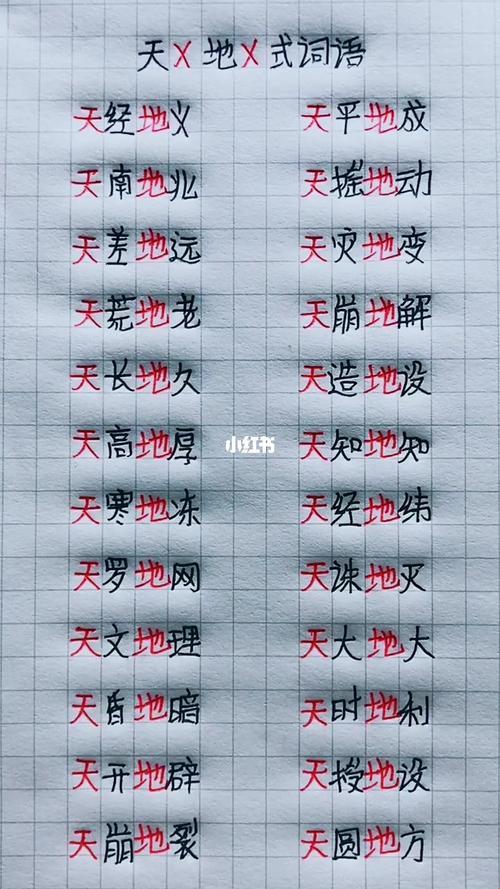 天X地X式词语
天经地义 天平地成
天南地北 天摇地动
天差地远 天灾地变
天荒地老 天崩地解
天长地久 天造地设
天高地厚 天知地知
小红书
天寒地冻 天经地纬
天罗地网 天诛地灭
天文地理 天大地大
天昏地暗 天时地利
天开地辟 天授地设
天崩地裂 天圆地方